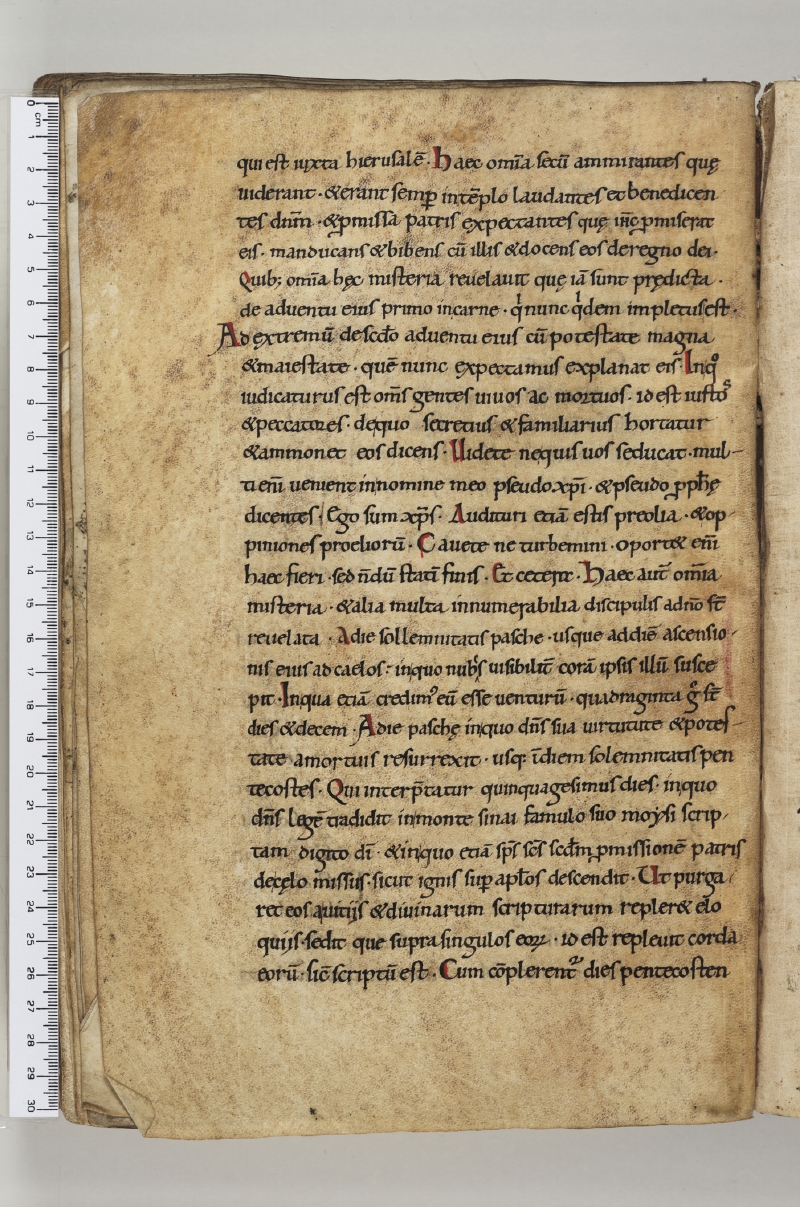 qui est iuxta hierusalē · Haec om̄ia secū ammirantes quę
uiderant · & erant semp̄ in tēplo laudantes et benedicen
tes dn̄m · & ꝓmissā patris expectantes quę in̄ę ꝓmiserat
eis · manducans & bibens cū illis & docens eos de regno dei ·
Quib; om̄ia hęc misteria reuelauit que iā sunt prędicta ·
de aduentu eius primo in carne · qͥ nunc qͥdem impletus est ·
Ad extremū de scd̄o aduentu eius cū potestate magna
& maiestate · quē nunc expectamus explanat eis · In qͦ
iudicaturus est om̄s gentes uiuos ac mortuos · id est iustos
& peccatores · de quo secretius & familiarius hortatur
& ammonet eos dicens · Uidete ne quis uos seducat · mul-
ti em̄ uenient in nomine meo pseudo xp̄i · & pseudo ꝓph̄ę
dicentes · Ego sum xp̄s · Audituri etiā estis preolia · & op-
piniones proeliorū · Cauete ne turbemini · oport& em̄
haec fieri · sed n̄dū statī finis · Et ceterͭ · Haec aut̄ om̄ia
misteria · & alia multa innumerabilia discipulis ad n̄o st̄
reuelata · A die sollemnitatis pasche · usque ad diē ascensio-
nis eius ad caelos · in quo nub̄s uisibilit̄ corā ipsis illū susce
pit · In qua etiā credim᾽ eū esse uenturū · quadraginta gͦ st̄
dies & decem · A die paschę in quo dn̄s sua uirtutute & potes-
tate a mortuis resurrexit · usq; ī diem solemnitatis pen
tecostes · Qui interp̄tatur quinquagesimus dies · in quo
dn̄s legē tradidit in monte sinai famulo suo moysi scrip-
tam digito dī · & in quo etiā sp̄s sc̄s scd̄m ꝓmissionē patris
de cęlo missus · sicut ignis sup̄ apl̄os descendit · Ut purga-
ret eos a uitijs & diuinarum scripturarum repler& elo
quijs · sedit que supra singulos eoꝝ · id est repleuit corda
eorū · sic̄ scriptū est · Cum cōplerentᷣ dies pentecosten